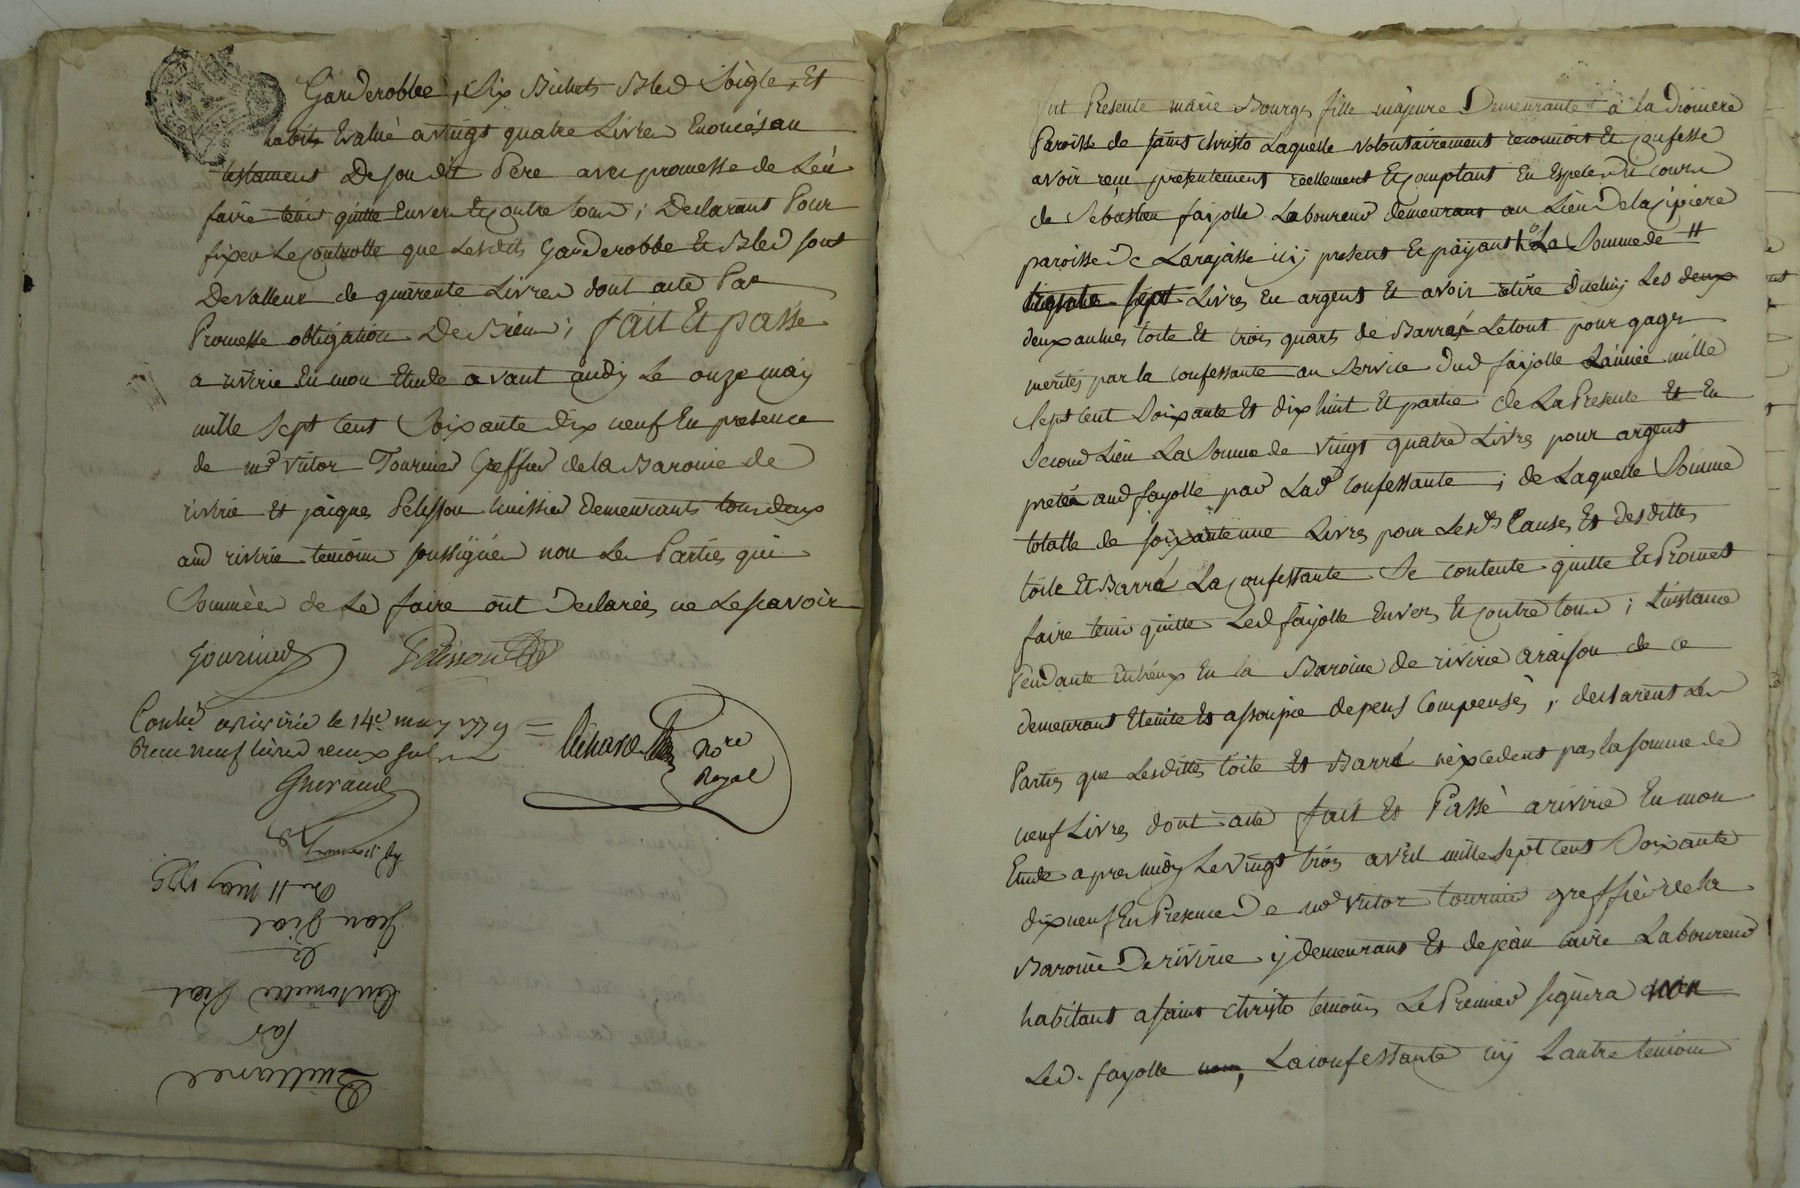 Garderobbe, Six Bichets Bled Soigle, Et
habits Evalué a vingt quatre Livres Enoncés au
testament De son dit Pere avec promesse de Lén
faire tenir quitte Envers Et contre tous ; Declarant Pour
fixer Le controlle que Lesdits Garderobbe Et Bled sont
De valleur de quarente Livres dont acte Par
Promesse obligation De Biens ; fait Et passé
a riverie En mon Etude avant midy Le onze may
mille Sept Cent Soixante dix neuf En presence
de mr Victor Tournier Greffier de la Baronie de
riverie et jacques Pelisson huissier demeurants tous deux
aud riverie temoins soussignés non Les Parties qui
Sommées de Le faire ont Declarées ne Le scavoir
Tournier Pelisson
Contlé a riverie le 14e may 1779
Recu neuf livres neux sols
Guerand
Richard Nore
Royal
Du 11 may 1779
Jean Piot
à
Antoinette Piot
Par
Quittance
fut Presente marie Bourge fille majeure Demeurante à la Dioniere
Paroisse de saint christo Laquelle volontairement reconnoit Et confesse
avoir recu presentement réellement Et comptant En Especes De cours
de Sebastien fayolle Laboureur demeurant au Lieu De la
paroisse De Larajasse icy present Et payant La Somme de
trente sept Livres En argent Et avoir retiré Diceluy Les deux
deux aulnes toile Et trois quarts de Barré Le tout pour gages
merités par la confessante au Service Dud fayolle L'année mille
Sept Cent Soixante Et dix huit Et partie de La Presente Et En
Second Lieu La Somme de vingt quatre Livres pour argent
preté aud fayolle par Lad confessante ; de Laquelle Somme
totalle de soixante une Livres pour Lesds Causes Et desdittes
toile Et Barré La confessante Se contente quitte Et Promet
faire tenir quitte Led fayolle Envers Et contre tous ; L'instance
Pendante Entr'eux En la Baronie de riverie a raison de ce
demeurant Eteinte Et assoupie depens Compensés ; declarent Les
Parties que Lesdittes toile Et Barré n'éxcedent pas la somme de
neuf Livres dont acte fait Et Passé a riverie En mon
Etude apres midy Le vingt trois avril mille Sept Cent Soixante
dix neuf En Presence De mr Victor tournier greffier de la
Baronie De riverie y demeurant Et de jean Laboureur
habitant a saint christo temoins Le Premier signera non
Led. fayolle La confessante icy L'autre temoin